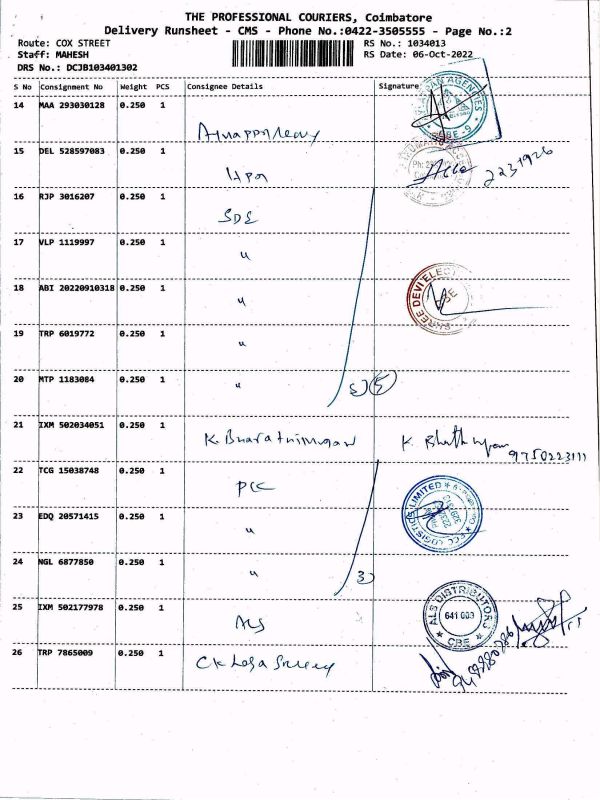 THE PROFESSIONAL COURIERS, Coimbatore
Delivery Runsheet - CMS - Phone No.:0422-3505555 - Page No.:2
Route: COX STREET RS No.: 1034013
Staff: MAHESH RS Date: 06-Oct-2022
DRS No.: DCJB103401302
S No Consignment No Weight PCS Consignee Details Signature
14 MAA 293030128 0.250 1
AGENCIES
CBE-9
15 DEL 528597083 0.250 1
2231926
16 RJP 3016207 0.250 1 SDE
17 VLP 1119997 0.250 1 "
18 ABI 20220910318 0.250 1 "
SHREE DEVI ELEC
CBE
19 TRP 6019772 0.250 1 "
20 MTP 1183084 0.250 1 " 5) 5
21 IXM 502034051 0.250 1 K. K.
9750223111
22 TCG 15038748 0.250 1 PCC
PCC LOGISTICS LIMITED
23 EDQ 20571415 0.250 1 "
24 NGL 6877850 0.250 1 " 3)
25 IXM 502177978 0.250 1 ALS
ALS DISTRIBUTORS
641 003
CBE
26 TRP 7865009 0.250 1